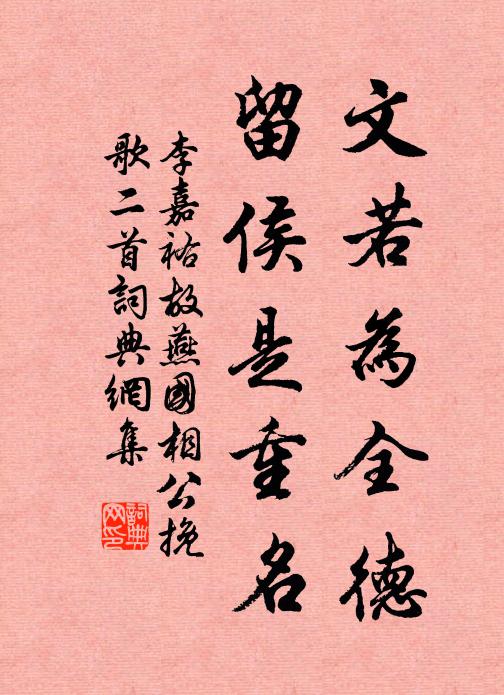 文若為全德
留侯是重名
李嘉祐故燕國相公挽
歌二首詞典網集
詞典
网印